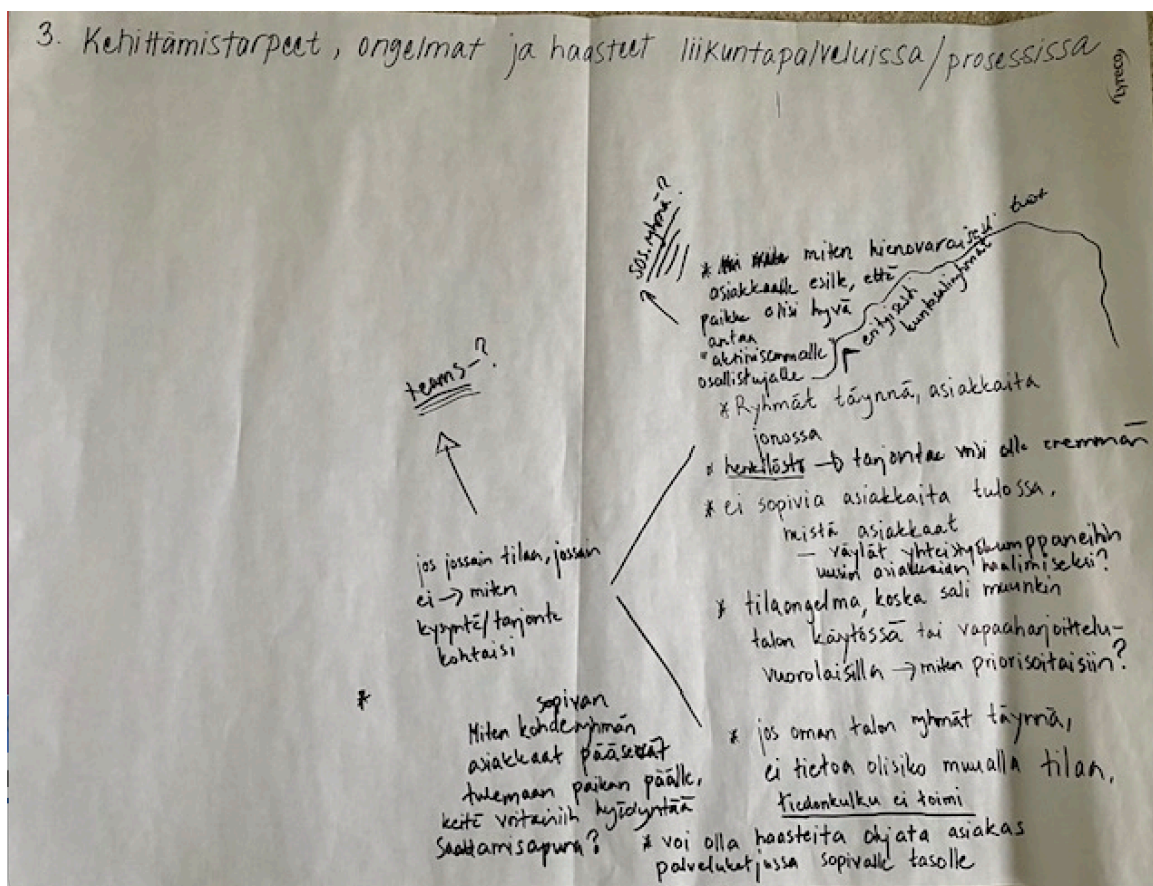 3. Kehittämistarpeet, ongelmat ja haasteet liikuntapalveluissa/prosessissa
Lyreco
sos.ryhmä?
* miten hienovaraisesti tuoda
asiakkaalle esille, että
paikka olisi hyvä
antaa
"aktiivisemmalle"
osallistujalle
erityisesti
kuntosaliryhmät
* Ryhmät täynnä, asiakkaita
jonossa
* henkilöstö → tarjontaa voisi olla enemmän
* ei sopivia asiakkaita tulossa,
mistä asiakkaat
- väylät yhteistyökumppaneihin
uusien asiakkaiden haalimiseksi?
* tilaongelma, koska sali muunkin
talon käytössä tai vapaaharjoittelu-
vuorolaisilla → miten priorisoitaisiin?
* jos oman talon ryhmät täynnä,
ei tietoa olisiko muualla tilaa,
tiedonkulku ei toimi
* voi olla haasteita ohjata asiakas
palveluketjussa sopivalle tasolle
teams-?
jos jossain tilaa, jossain
ei → miten
kysyntä/tarjonta
kohtaisi
*
sopivan
Miten kohderyhmän
asiakkaat pääsevät
tulemaan paikan päälle,
keitä voitaisiin hyödyntää
Saattamisapuna?